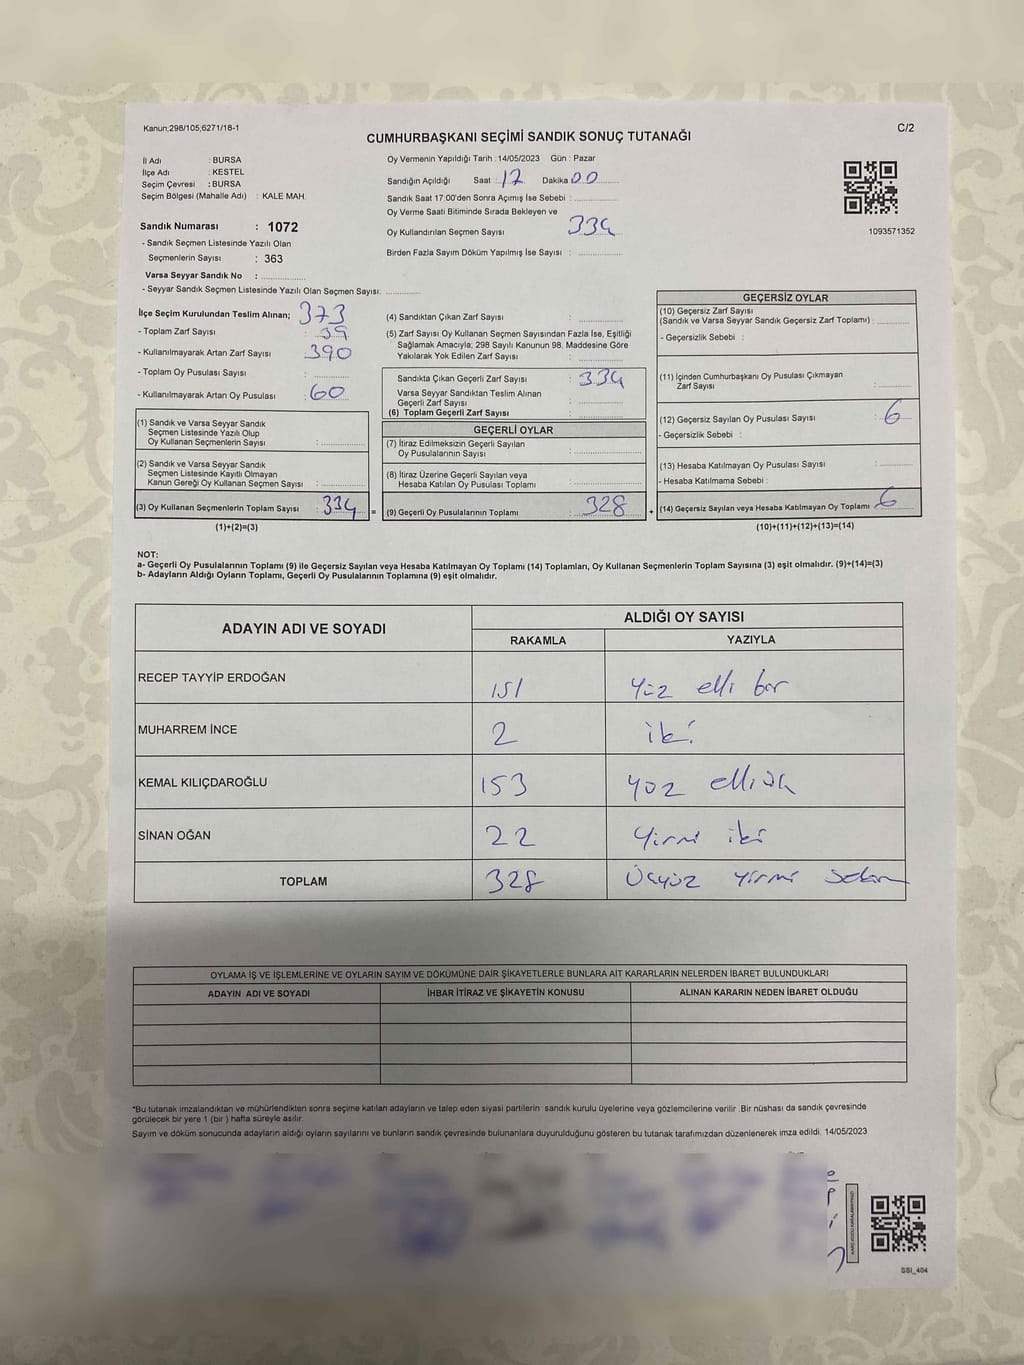 Kanun;298/105;6271/18-1
C/2
CUMHURBAŞKANI SEÇİMİ SANDIK SONUÇ TUTANAĞI
İl Adı : BURSA
İlçe Adı : KESTEL
Seçim Çevresi : BURSA
Seçim Bölgesi (Mahalle Adı) : KALE MAH.
Sandık Numarası : 1072
- Sandık Seçmen Listesinde Yazılı Olan
Seçmenlerin Sayısı : 363
Varsa Seyyar Sandık No :
- Seyyar Sandık Seçmen Listesinde Yazılı Olan Seçmen Sayısı:
Oy Vermenin Yapıldığı Tarih : 14/05/2023 Gün : Pazar
Sandığın Açıldığı Saat : 17 Dakika 00
Sandık Saat 17:00'den Sonra Açımış İse Sebebi :
Oy Verme Saati Bitiminde Sırada Bekleyen ve
Oy Kullandırılan Seçmen Sayısı 334
Birden Fazla Sayım Döküm Yapılmış İse Sayısı :
1093571352
İlçe Seçim Kurulundan Teslim Alınan; 373
- Toplam Zarf Sayısı : 39
- Kullanılmayarak Artan Zarf Sayısı : 390
- Toplam Oy Pusulası Sayısı :
- Kullanılmayarak Artan Oy Pusulası : 60
(1) Sandık ve Varsa Seyyar Sandık
Seçmen Listesinde Yazılı Olup
Oy Kullanan Seçmenlerin Sayısı :
(2) Sandık ve Varsa Seyyar Sandık
Seçmen Listesinde Kayıtlı Olmayan
Kanun Gereği Oy Kullanan Seçmen Sayısı :
(3) Oy Kullanan Seçmenlerin Toplam Sayısı : 334 =
(1)+(2)=(3)
(4) Sandıktan Çıkan Zarf Sayısı :
(5) Zarf Sayısı Oy Kullanan Seçmen Sayısından Fazla İse, Eşitliği
Sağlamak Amacıyla; 298 Sayılı Kanunun 98. Maddesine Göre
Yakılarak Yok Edilen Zarf Sayısı :
Sandıkta Çıkan Geçerli Zarf Sayısı : 334
Varsa Seyyar Sandıktan Teslim Alınan
Geçerli Zarf Sayısı :
(6) Toplam Geçerli Zarf Sayısı :
GEÇERLİ OYLAR
(7) İtiraz Edilmeksizin Geçerli Sayılan
Oy Pusulalarının Sayısı :
(8) İtiraz Üzerine Geçerli Sayılan veya
Hesaba Katılan Oy Pusulası Toplamı :
(9) Geçerli Oy Pusulalarının Toplamı : 328 +
GEÇERSİZ OYLAR
(10) Geçersiz Zarf Sayısı
(Sandık ve Varsa Seyyar Sandık Geçersiz Zarf Toplamı) :
- Geçersizlik Sebebi :
(11) İçinden Cumhurbaşkanı Oy Pusulası Çıkmayan
Zarf Sayısı :
(12) Geçersiz Sayılan Oy Pusulası Sayısı : 6
- Geçersizlik Sebebi :
(13) Hesaba Katılmayan Oy Pusulası Sayısı :
- Hesaba Katılmama Sebebi :
(14) Geçersiz Sayılan veya Hesaba Katılmayan Oy Toplamı 6
(10)+(11)+(12)+(13)=(14)
NOT:
a- Geçerli Oy Pusulalarının Toplamı (9) ile Geçersiz Sayılan veya Hesaba Katılmayan Oy Toplamı (14) Toplamları, Oy Kullanan Seçmenlerin Toplam Sayısına (3) eşit olmalıdır. (9)+(14)=(3)
b- Adayların Aldığı Oyların Toplamı, Geçerli Oy Pusulalarının Toplamına (9) eşit olmalıdır.
ADAYIN ADI VE SOYADI ALDIĞI OY SAYISI
RAKAMLA YAZIYLA
RECEP TAYYİP ERDOĞAN 151 Yüz elli bir
MUHARREM İNCE 2 iki
KEMAL KILIÇDAROĞLU 153 yüz elli üç
SİNAN OĞAN 22 Yirmi iki
TOPLAM 328 Üçyüz yirmi sekiz
OYLAMA İŞ VE İŞLEMLERİNE VE OYLARIN SAYIM VE DÖKÜMÜNE DAİR ŞİKAYETLERLE BUNLARA AİT KARARLARIN NELERDEN İBARET BULUNDUKLARI
ADAYIN ADI VE SOYADI İHBAR İTİRAZ VE ŞİKAYETİN KONUSU ALINAN KARARIN NEDEN İBARET OLDUĞU
*Bu tutanak imzalandıktan ve mühürlendikten sonra seçime katılan adayların ve talep eden siyasi partilerin sandık kurulu üyelerine veya gözlemcilerine verilir .Bir nüshası da sandık çevresinde
görülecek bir yere 1 (bir ) hafta süreyle asılır.
Sayım ve döküm sonucunda adayların aldığı oyların sayılarını ve bunların sandık çevresinde bulunanlara duyurulduğunu gösteren bu tutanak tarafımızdan düzenlenerek imza edildi. 14/05/2023
SSI_404